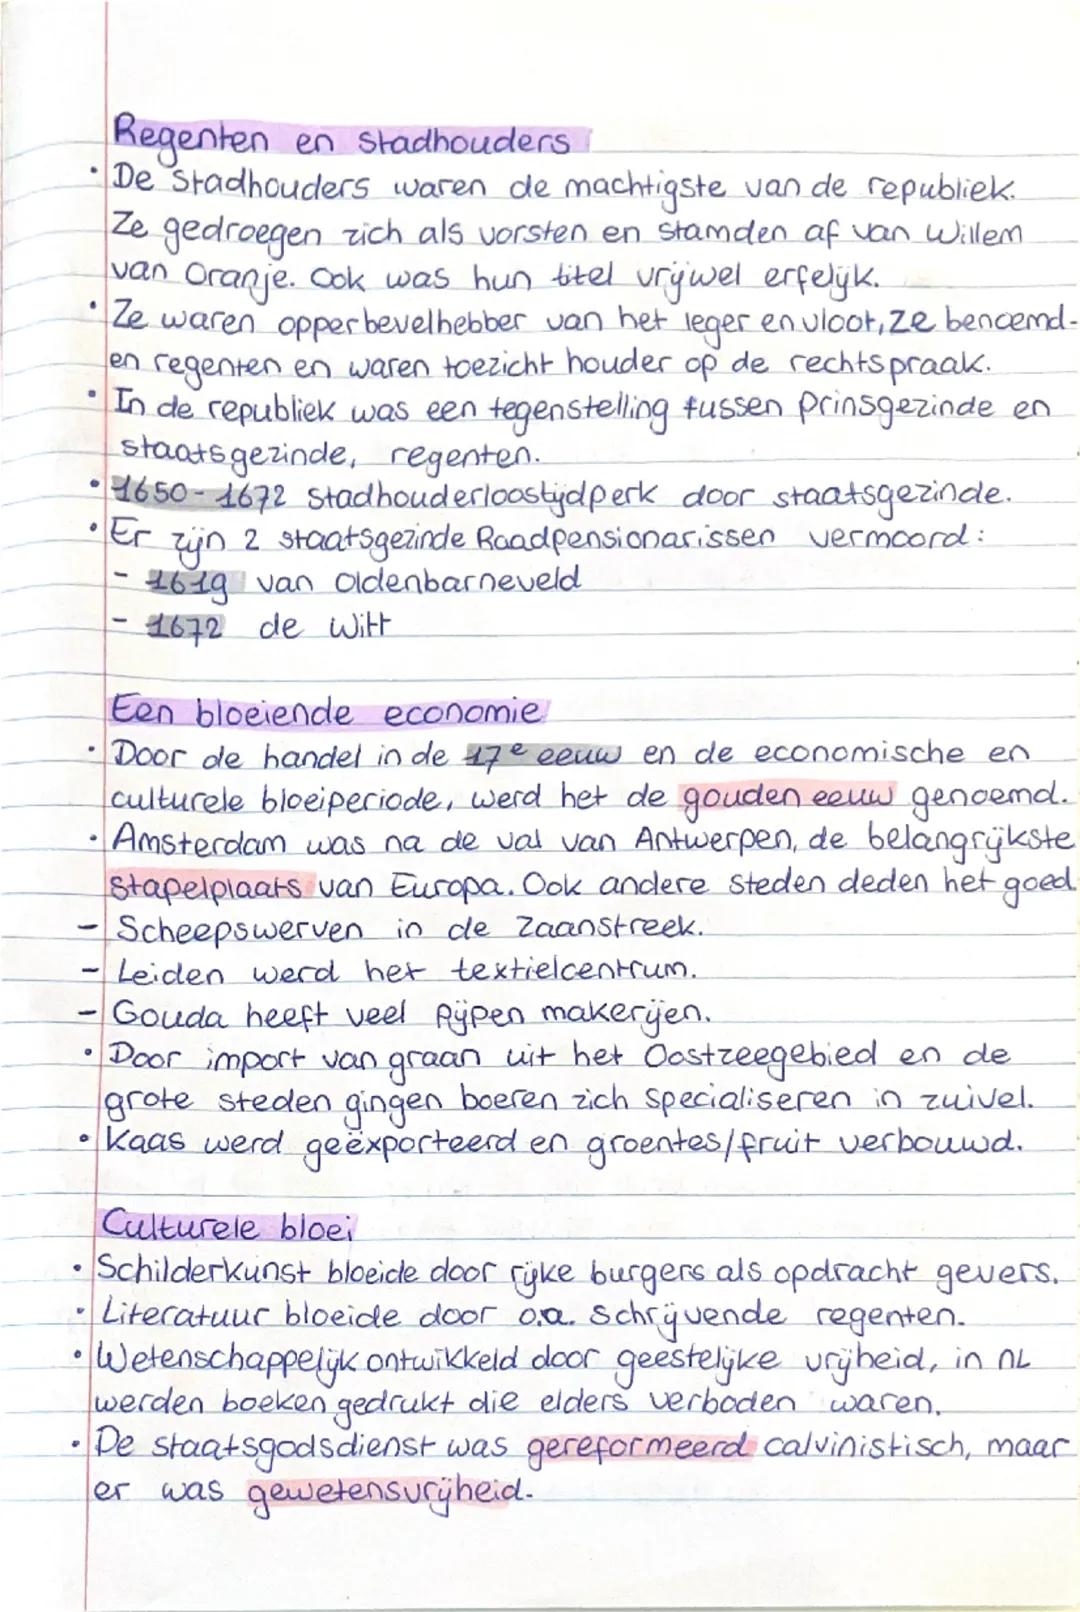 Regenten en stadhouders
• De stadhouders waren de machtigste van de republiek.
Ze gedroegen zich als vorsten en stamden af van Willem
van Oranje. Ook was hun titel vrijwel erfelijk.
• Ze waren opperbevelhebber van het leger en vloot, ze benoemd-
en regenten en waren toezicht houder op de rechtspraak.
• In de republiek was een tegenstelling tussen prinsgezinde en
staatsgezinde, regenten.
• 1650-1672 Stadhouderloostijdperk door staatsgezinde.
• Er zijn 2 staatsgezinde Raadpensionarissen vermoord:
- 1619 van Oldenbarneveld
- 1672 de Witt
Een bloeiende economie
• Door de handel in de 17e eeuw en de economische en
culturele bloeiperiode, werd het de gouden eeuw genoemd.
• Amsterdam was na de val van Antwerpen, de belangrijkste
stapelplaats van Europa. Ook andere steden deden het goed
- Scheepswerven in de Zaanstreek.
- Leiden werd het textielcentrum.
- Gouda heeft veel Pijpen makerijen.
• Door import van graan uit het Oostzeegebied en de
grote steden gingen boeren zich specialiseren in zuivel.
• Kaas werd geëxporteerd en groentes/fruit verbouwd.
Culturele bloei
• Schilderkunst bloeide door rijke burgers als opdracht gevers.
• Literatuur bloeide door o.a. Schrijvende regenten.
• Wetenschappelijk ontwikkeld door geestelijke vrijheid, in NL
werden boeken gedrukt die elders verboden waren.
• De staatsgodsdienst was gereformeerd calvinistisch, maar
er was gewetensvrijheid.